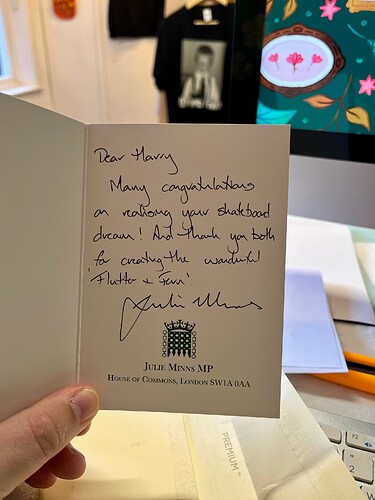 Dear Harry
Many congratulations
on realising your skateboard
dream! And thank you both
for creating the wonderful
'Flutter & Fern'.
Julie Minns
JULIE MINNS MP
HOUSE OF COMMONS, LONDON SW1A 0AA
PREMIUM
F2
2
W